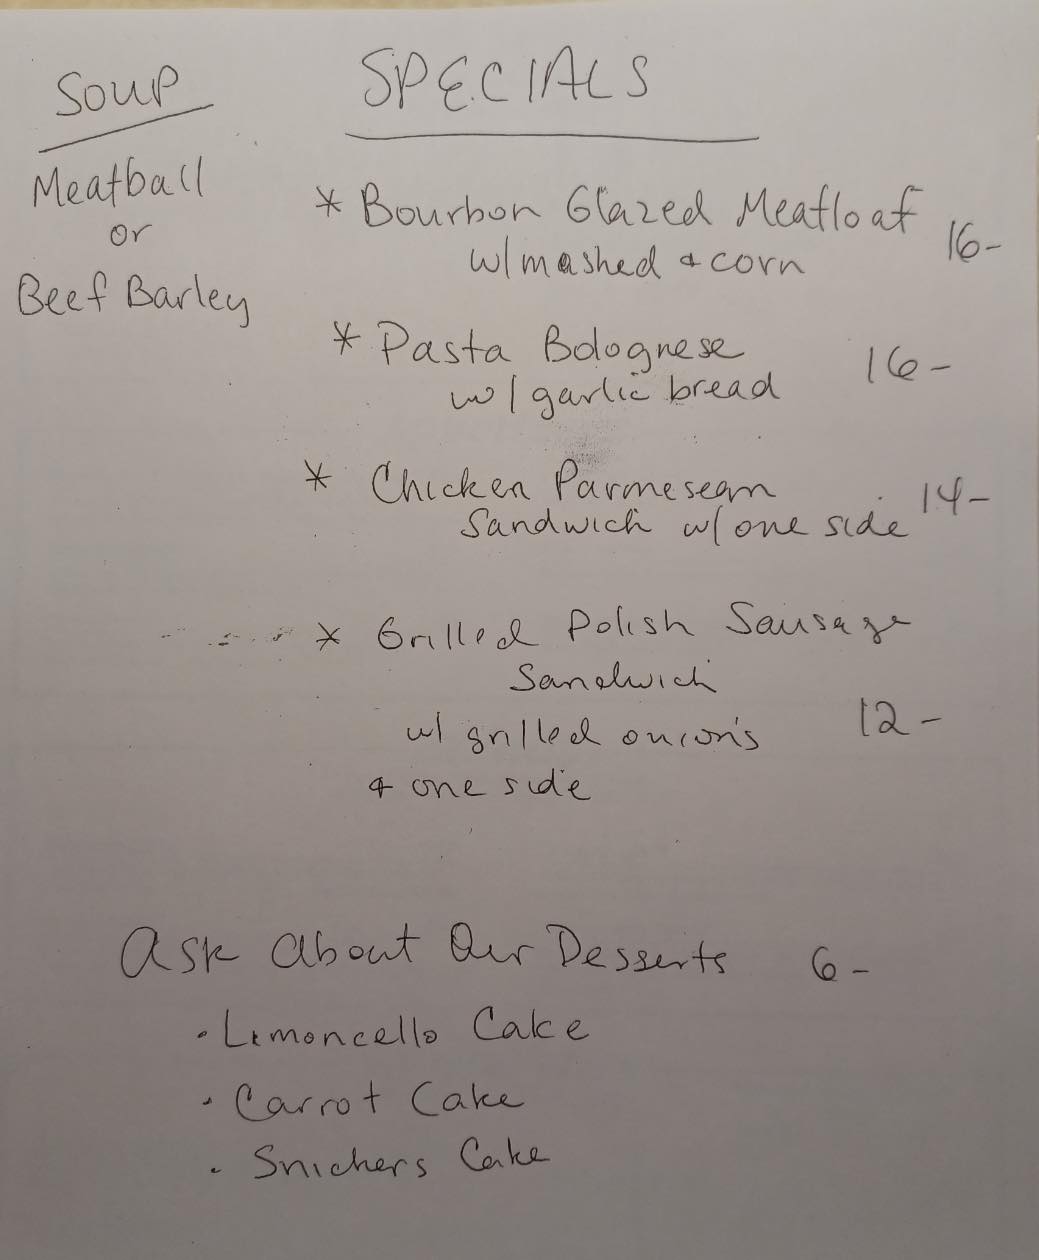 Soup
Meatball
or
Beef Barley
SPECIALS
* Bourbon Glazed Meatloaf 16-
w/ mashed & corn
* Pasta Bolognese 16-
w/ garlic bread
* Chicken Parmesean 14-
Sandwich w/ one side
* Grilled Polish Sausage
Sandwich
w/ grilled onions 12-
& one side
Ask About Our Desserts 6-
· Limoncello Cake
· Carrot Cake
· Snickers Cake